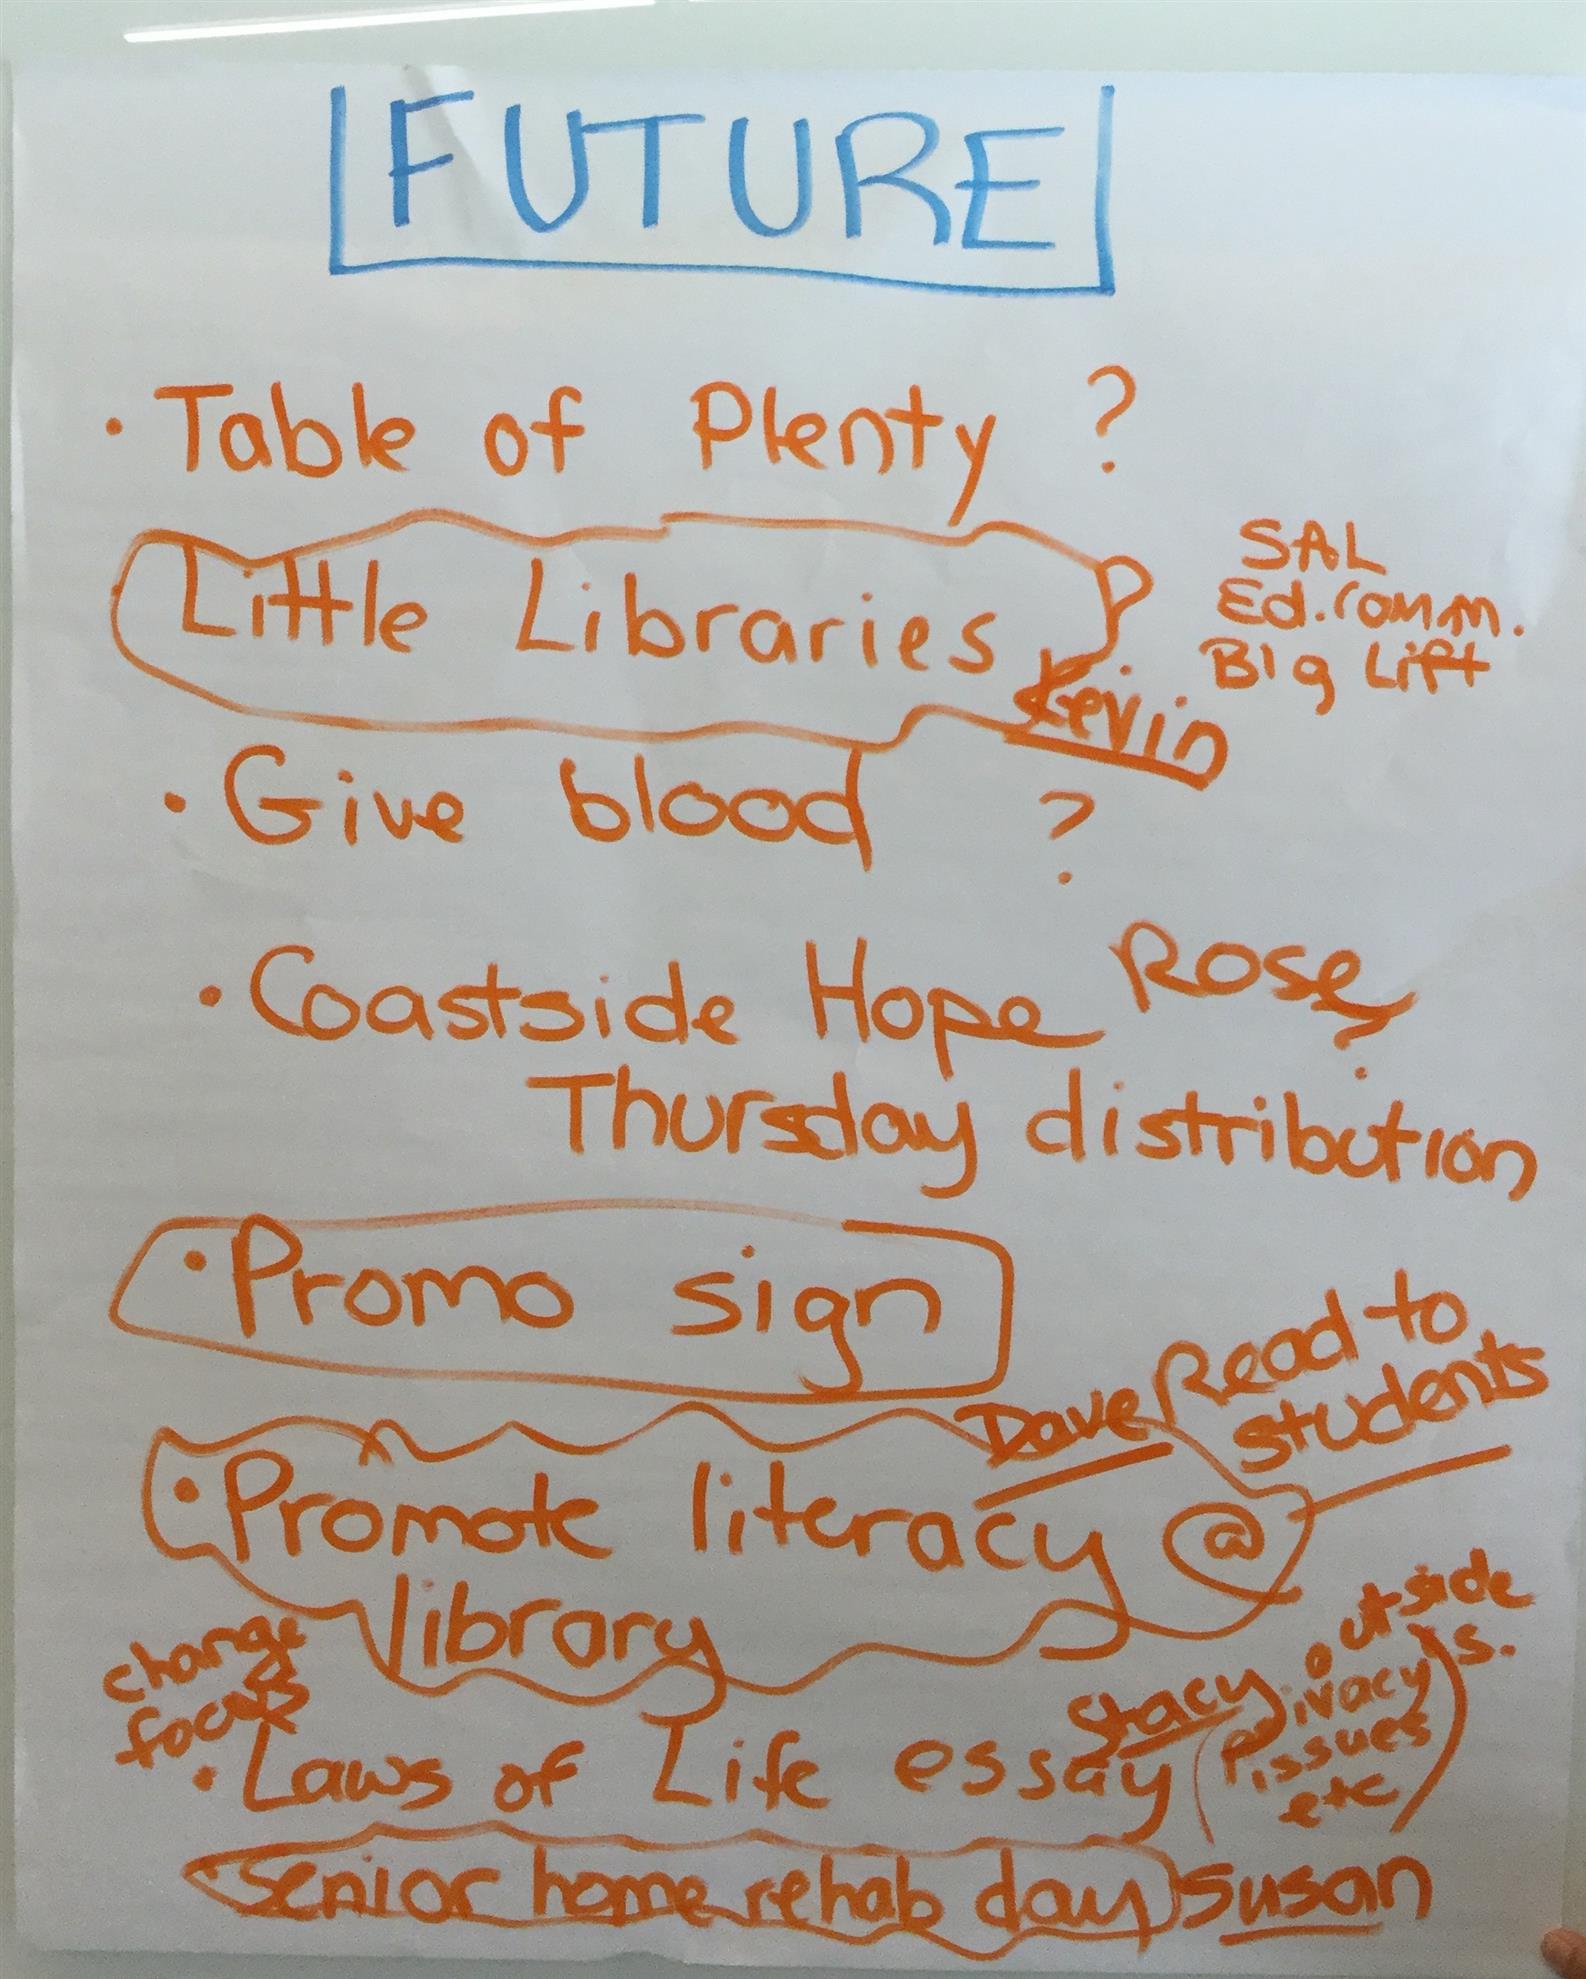 FUTURE
• Table of Plenty ?
Little Libraries
Kevin
SAL
Ed. Comm.
Big Lift
• Give blood ?
• Coastside Hope Rose ?
Thursday distribution
• Promo sign
Dave Read to
students
• Promote literacy @
library
change
focus
• Laws of Life essay
Stacy
outside
(Privacy
issues
etc)
• Senior home rehab day Susan